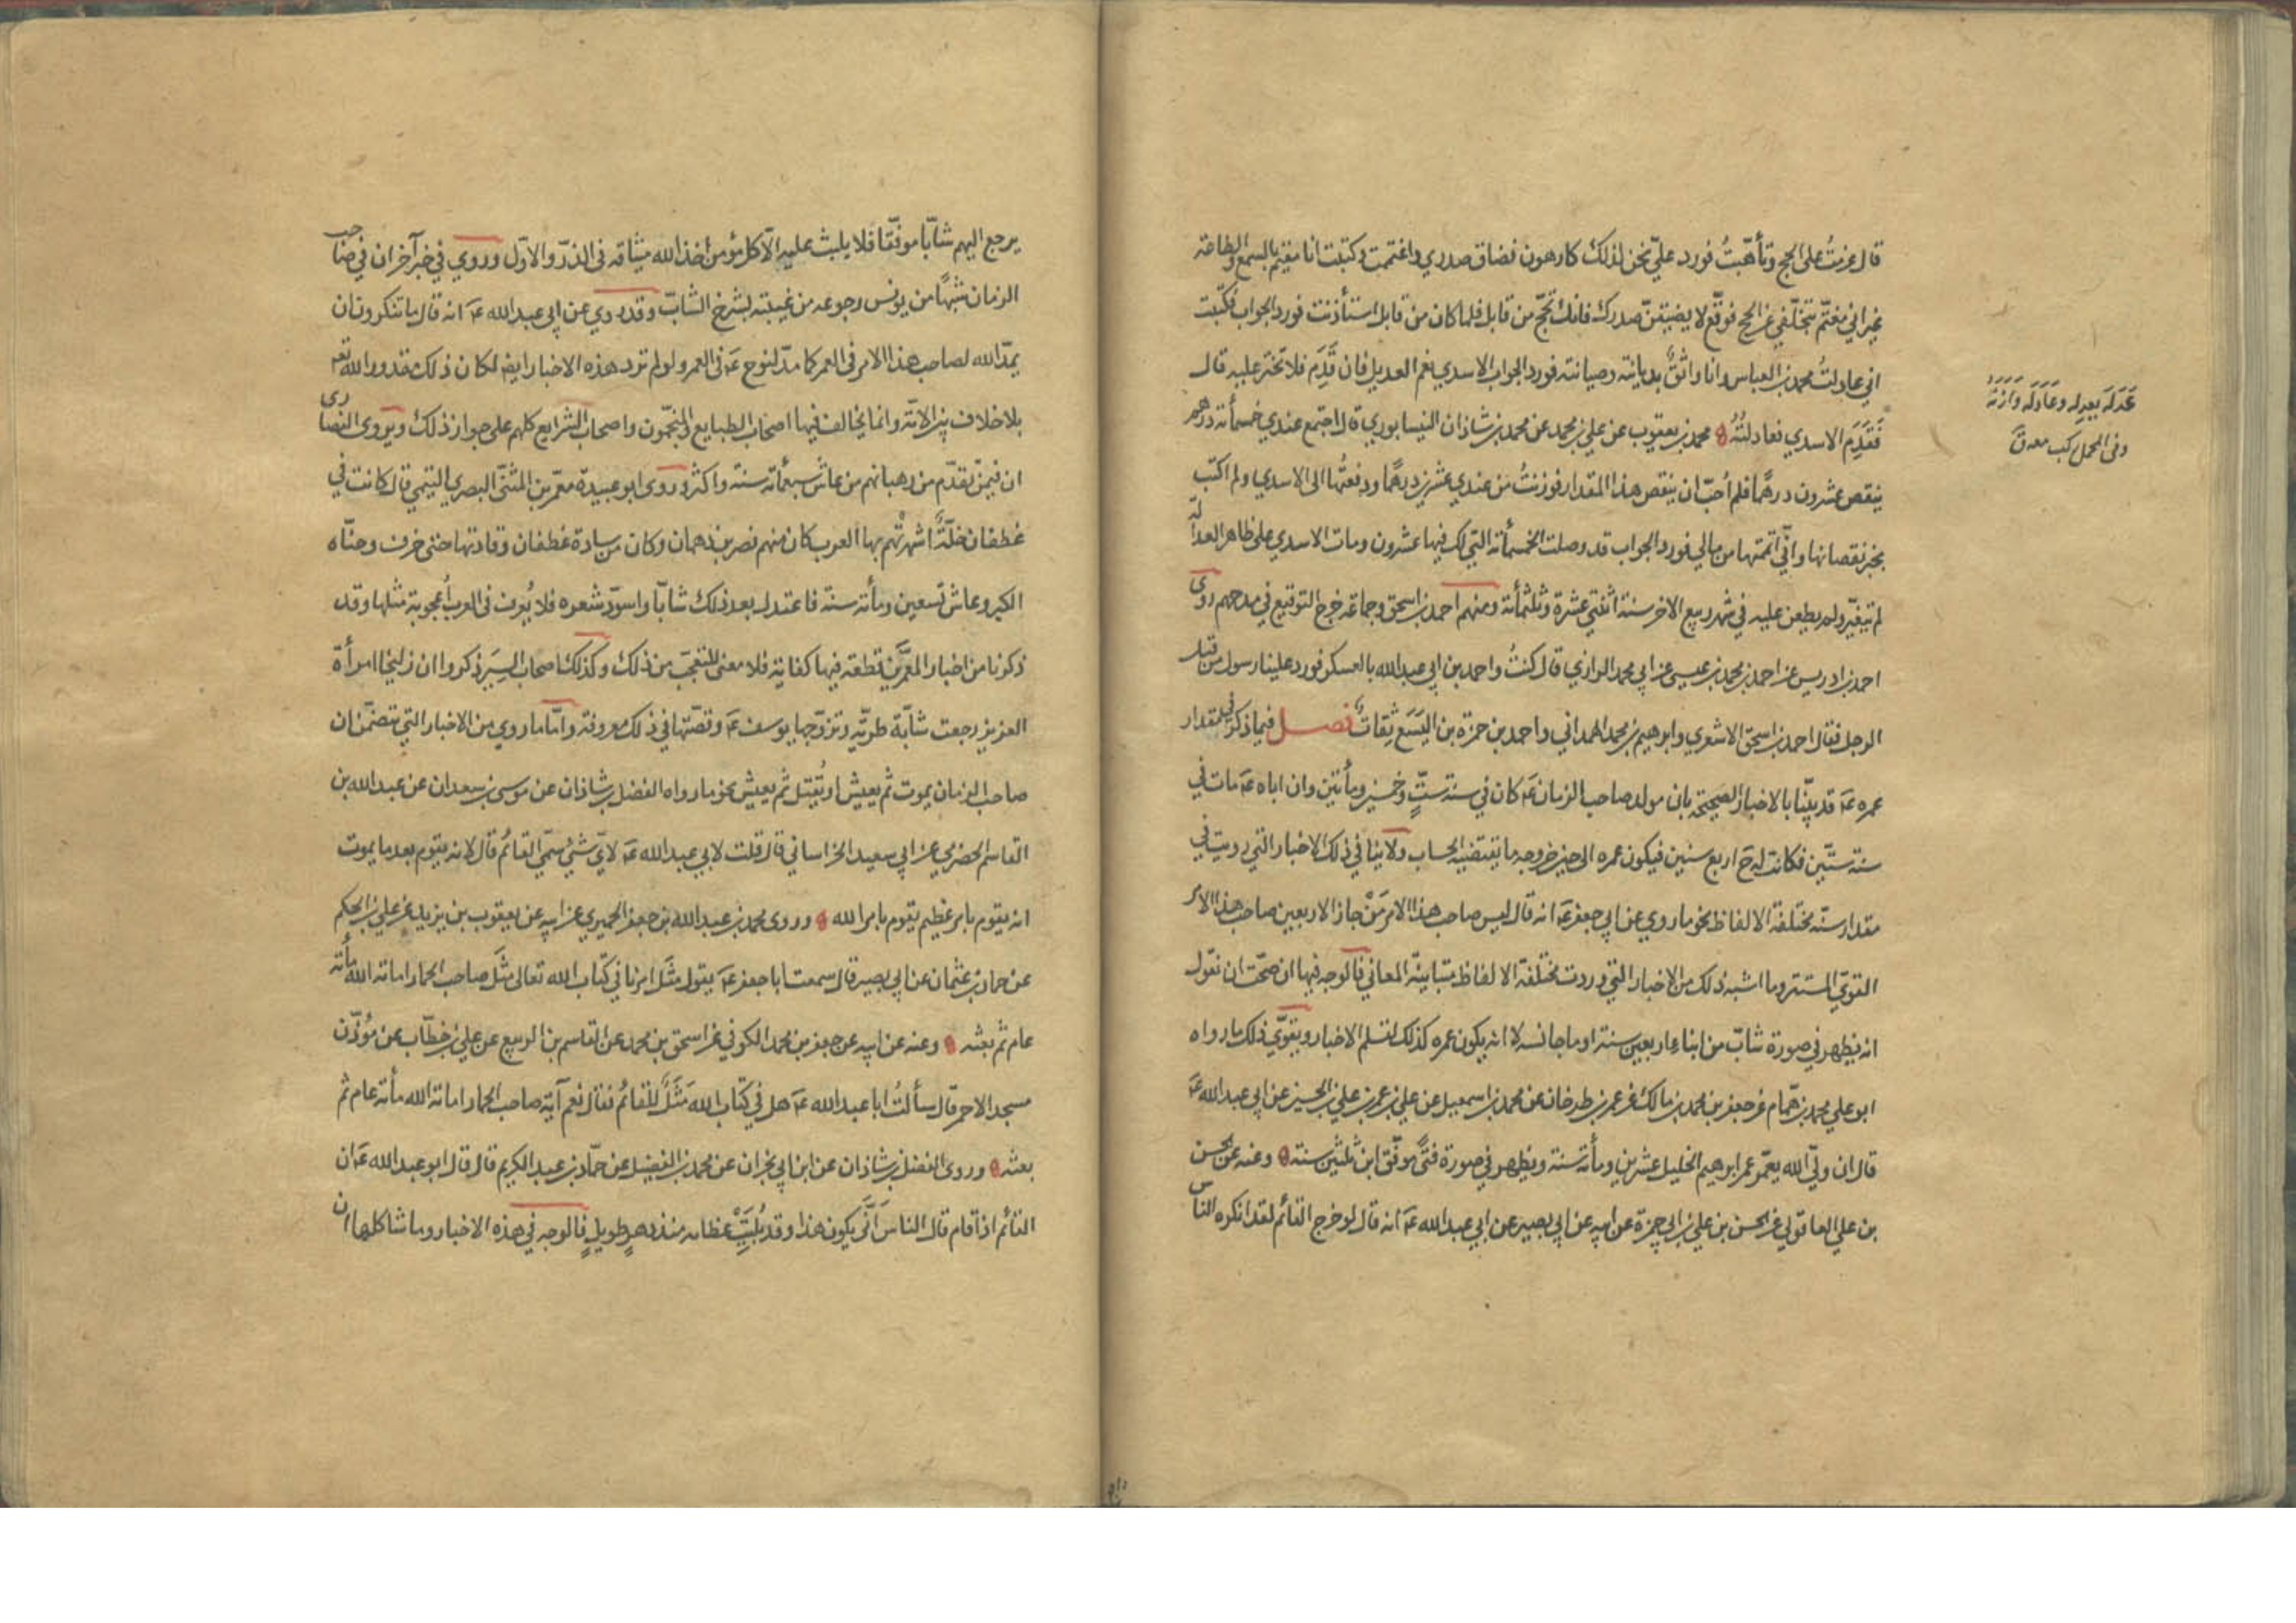 قال عزمتُ على الحج وتأهّبتُ فورد عليّ نحن لذلك كارهون فضاق صدري واغتممت وكتبت انا مقيم بالسمع والطاعة
غير اني مغتمّ بتخلّفي عن الحج فوقّع لا يضيقنّ صدرك فانك تحجّ من قابل فلما كان من قابل استأذنت فورد الجواب فكتبت
اني عادلتُ محمد بن العباس وانا واثقٌ بديانته وصيانته فورد الجواب الاسدي نعم العديل فان قَدِمَ فلا تختر عليه قال
فَقَدِمَ الاسدي فعادلتُهُ محمد بن يعقوب عن علي بن محمد عن محمد بن شاذان النيسابوري قال اجتمع عندي خمسمأئة درهم
ينقص عشرون درهمًا فلم أحبّ ان ينقص هذا المقدار فوزنتُ من عندي عشرين درهمًا ودفعتُها الى الاسدي ولم اكتب
بخبر نقصانها واني اتممتها من مالي فورد الجواب قد وصلت الخمسمأئة التي لك فيها عشرون ومات الاسدي على ظاهر العدالة
لم يتغيّر ولم يطعن عليه في شهر ربيع الاخر سنة اثنتي عشرة وثلثمأئة ومنهم احمد بن اسحق وجماعة خرج التوقيع في مدحهم روى
احمد بن ادريس عن احمد بن محمد بن عيسى عن ابي محمد الرازي قال كنتُ واحمد بن ابي عبدالله بالعسكر فورد علينا رسول من قبل
الرجل فقال احمد بن اسحق الاشعري وابرهيم بن محمد الهمداني واحمد بن حمزة بن اليَسَع ثِقاتٌ فصل فيما ذكر في مقدار
عمره عَ قد بيّنّا بالاخبار الصحيحة بان مولد صاحب الزمان عَ كان في سنة ستٍّ وخمسين ومأتين وان اباه عَ مات في
سنة ستّين فكانت له حَ اربع سنين فيكون عمره الى حين خروجه ما يقتضيه الحساب ولا ينافي ذلك الاخبار التي رويت في
مقدار سنّه مختلفة الالفاظ نحو ما روي عن ابي جعفر عَ انه قال ليس صاحب هذا الامر مَنْ جاز الاربعين صاحب هذا الامر
القويّ المستتر وما اشبه ذلك من الاخبار التي وردت مختلفة الالفاظ متباينة المعاني فالوجه فيها ان صحّت ان نقول
انه يظهر في صورة شابّ من ابناء اربعين سنة او ما جانسه لا انه يكون عمره كذلك لتسلم الاخبار ويقوّي ذلك ما رواه
ابو علي محمد بن همّام عن جعفر بن محمد بن مالك عن عمر بن طرخان عن محمد بن اسمعيل عن علي بن عمر بن علي بن الحسين عن ابي عبدالله عَ
قال ان وليّ الله يعمّر عمر ابرهيم الخليل عشرين ومأئة سنة ويظهر في صورة فتًى موفّق ابن ثلثين سنة وعنه عن الحسن
بن علي العاقولي عن الحسن بن علي بن ابي حمزة عن ابيه عن ابي بصير عن ابي عبدالله عَ انه قال لو خرج القائم لقد انكره الناس
عَدَلَه يعدِله وعَادَلَه وَازَنَهُ
وفى المحمل ركب معه قَ
يرجع اليهم شابّا موفّقا فلا يلبث عليه الّا كل مؤمن أخذ الله ميثاقه في الذرّ والاوّل وروي في خبر آخر ان في صاحب
الزمان شبهًا من يونس رجوعه من غيبته بشرخ الشابّ وقد روي عن ابي عبدالله عَ انه قال ما تنكرون ان
يمدّ الله لصاحب هذا الامر في العمر كما مدّ لنوح عَ في العمر ولو لم ترد هذه الاخبار ايضا لكان ذلك مقدور الله تعه
بلا خلاف بين الامّة وانما يخالف فيها اصحاب الطبايع والمنجّمون واصحاب الشرايع كلهم على جواز ذلك ويروى النصارى
ان فيمن تقدّم من رهبانهم من عاش سبعمأئة سنة واكثر وروى ابو عبيدة معمر بن المثنّى البصري التيمي قال كانت في
غطفان خلّةٌ اشهرتْهم بها العرب كان منهم نصر بن دهمان وكان من سادة غطفان وقادتها حتى خرف وحناه
الكبر وعاش تسعين ومأئة سنة فاعتدل بعد ذلك شابّا واسودّ شعره فلا يُعرف في العرب أعجوبة مثلها وقد
ذكرنا من اخبار المعمّرين قطعة فيها كفاية فلا معنى للتعجّب من ذلك وكذلك اصحاب السِيَر ذكروا ان زليخا امرأة
العزيز رجعت شابّة طريّة وتزوّجها يوسف عَ وقصّتها في ذلك معروفة وامّا ما روي من الاخبار التي تتضمّن ان
صاحب الزمان يموت ثم يعيش او يُقتل ثم يعيش نحو ما رواه الفضل بن شاذان عن موسى بن سعدان عن عبدالله بن
القاسم الحضرمي عن ابي سعيد الخراساني قال قلت لابي عبدالله عَ لايّ شيء سمّي القائم قال لانه يقوم بعد ما يموت
انه يقوم بامر عظيم يقوم بامر الله وروى محمد بن عبدالله بن جعفر الحميري عن ابيه عن يعقوب بن يزيد عن علي بن الحكم
عن حماد بن عثمان عن ابي بصير قال سمعت ابا جعفر عَ يقول مثَل امرنا في كتاب الله تعالى مثَل صاحب الحمار اماته الله مأئة
عام ثم بعثه وعنه عن ابيه عن جعفر بن محمد الكوفي عن اسحق بن محمد عن القاسم بن الربيع عن علي بن خطّاب عن مُؤذّن
مسجد الاحمر قال سألتُ ابا عبدالله عَ هل في كتاب الله مَثَلٌ للقائم فقال نعم آية صاحب الحمار اماته الله مأئة عام ثم
بعثه وروى الفضل بن شاذان عن ابن ابي نجران عن محمد بن الفضيل عن حمّاد بن عبد الكريم قال قال ابو عبدالله عَ ان
القائم اذا قام قال الناس اَنّى يكون هذا وقد بُلِيَتْ عظامه منذ دهرٍ طويلٍ فالوجه في هذه الاخبار وما شاكلها ان